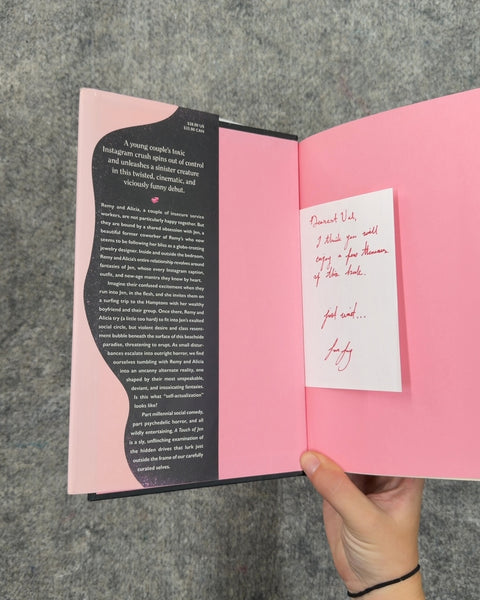 $28.00 US
$35.00 CAN
A young couple's toxic
Instagram crush spins out of control
and unleashes a sinister creature
in this twisted, cinematic, and
viciously funny debut.
Remy and Alicia, a couple of insecure service
workers, are not particularly happy together. But
they are bound by a shared obsession with Jen, a
beautiful former coworker of Remy's who now
seems to be following her bliss as a globe-trotting
jewelry designer. Inside and outside the bedroom,
Remy and Alicia's entire relationship revolves around
fantasies of Jen, whose every Instagram caption,
outfit, and new-age mantra they know by heart.
Imagine their confused excitement when they
run into Jen, in the flesh, and she invites them on
a surfing trip to the Hamptons with her wealthy
boyfriend and their group. Once there, Remy and
Alicia try (a little too hard) to fit into Jen's exalted
social circle, but violent desire and class resent-
ment bubble beneath the surface of this beachside
paradise, threatening to erupt. As small distur-
bances escalate into outright horror, we find
ourselves tumbling with Remy and Alicia
into an uncanny alternate reality, one
shaped by their most unspeakable,
deviant, and intoxicating fantasies.
Is this what "self-actualization"
looks like?
Part millennial social comedy,
part psychedelic horror, and all
wildly entertaining, A Touch of Jen
is a sly, unflinching examination of
the hidden drives that lurk just
outside the frame of our carefully
curated selves.
Dearest
I think you will
enjoy a few
of this book.
just wait...